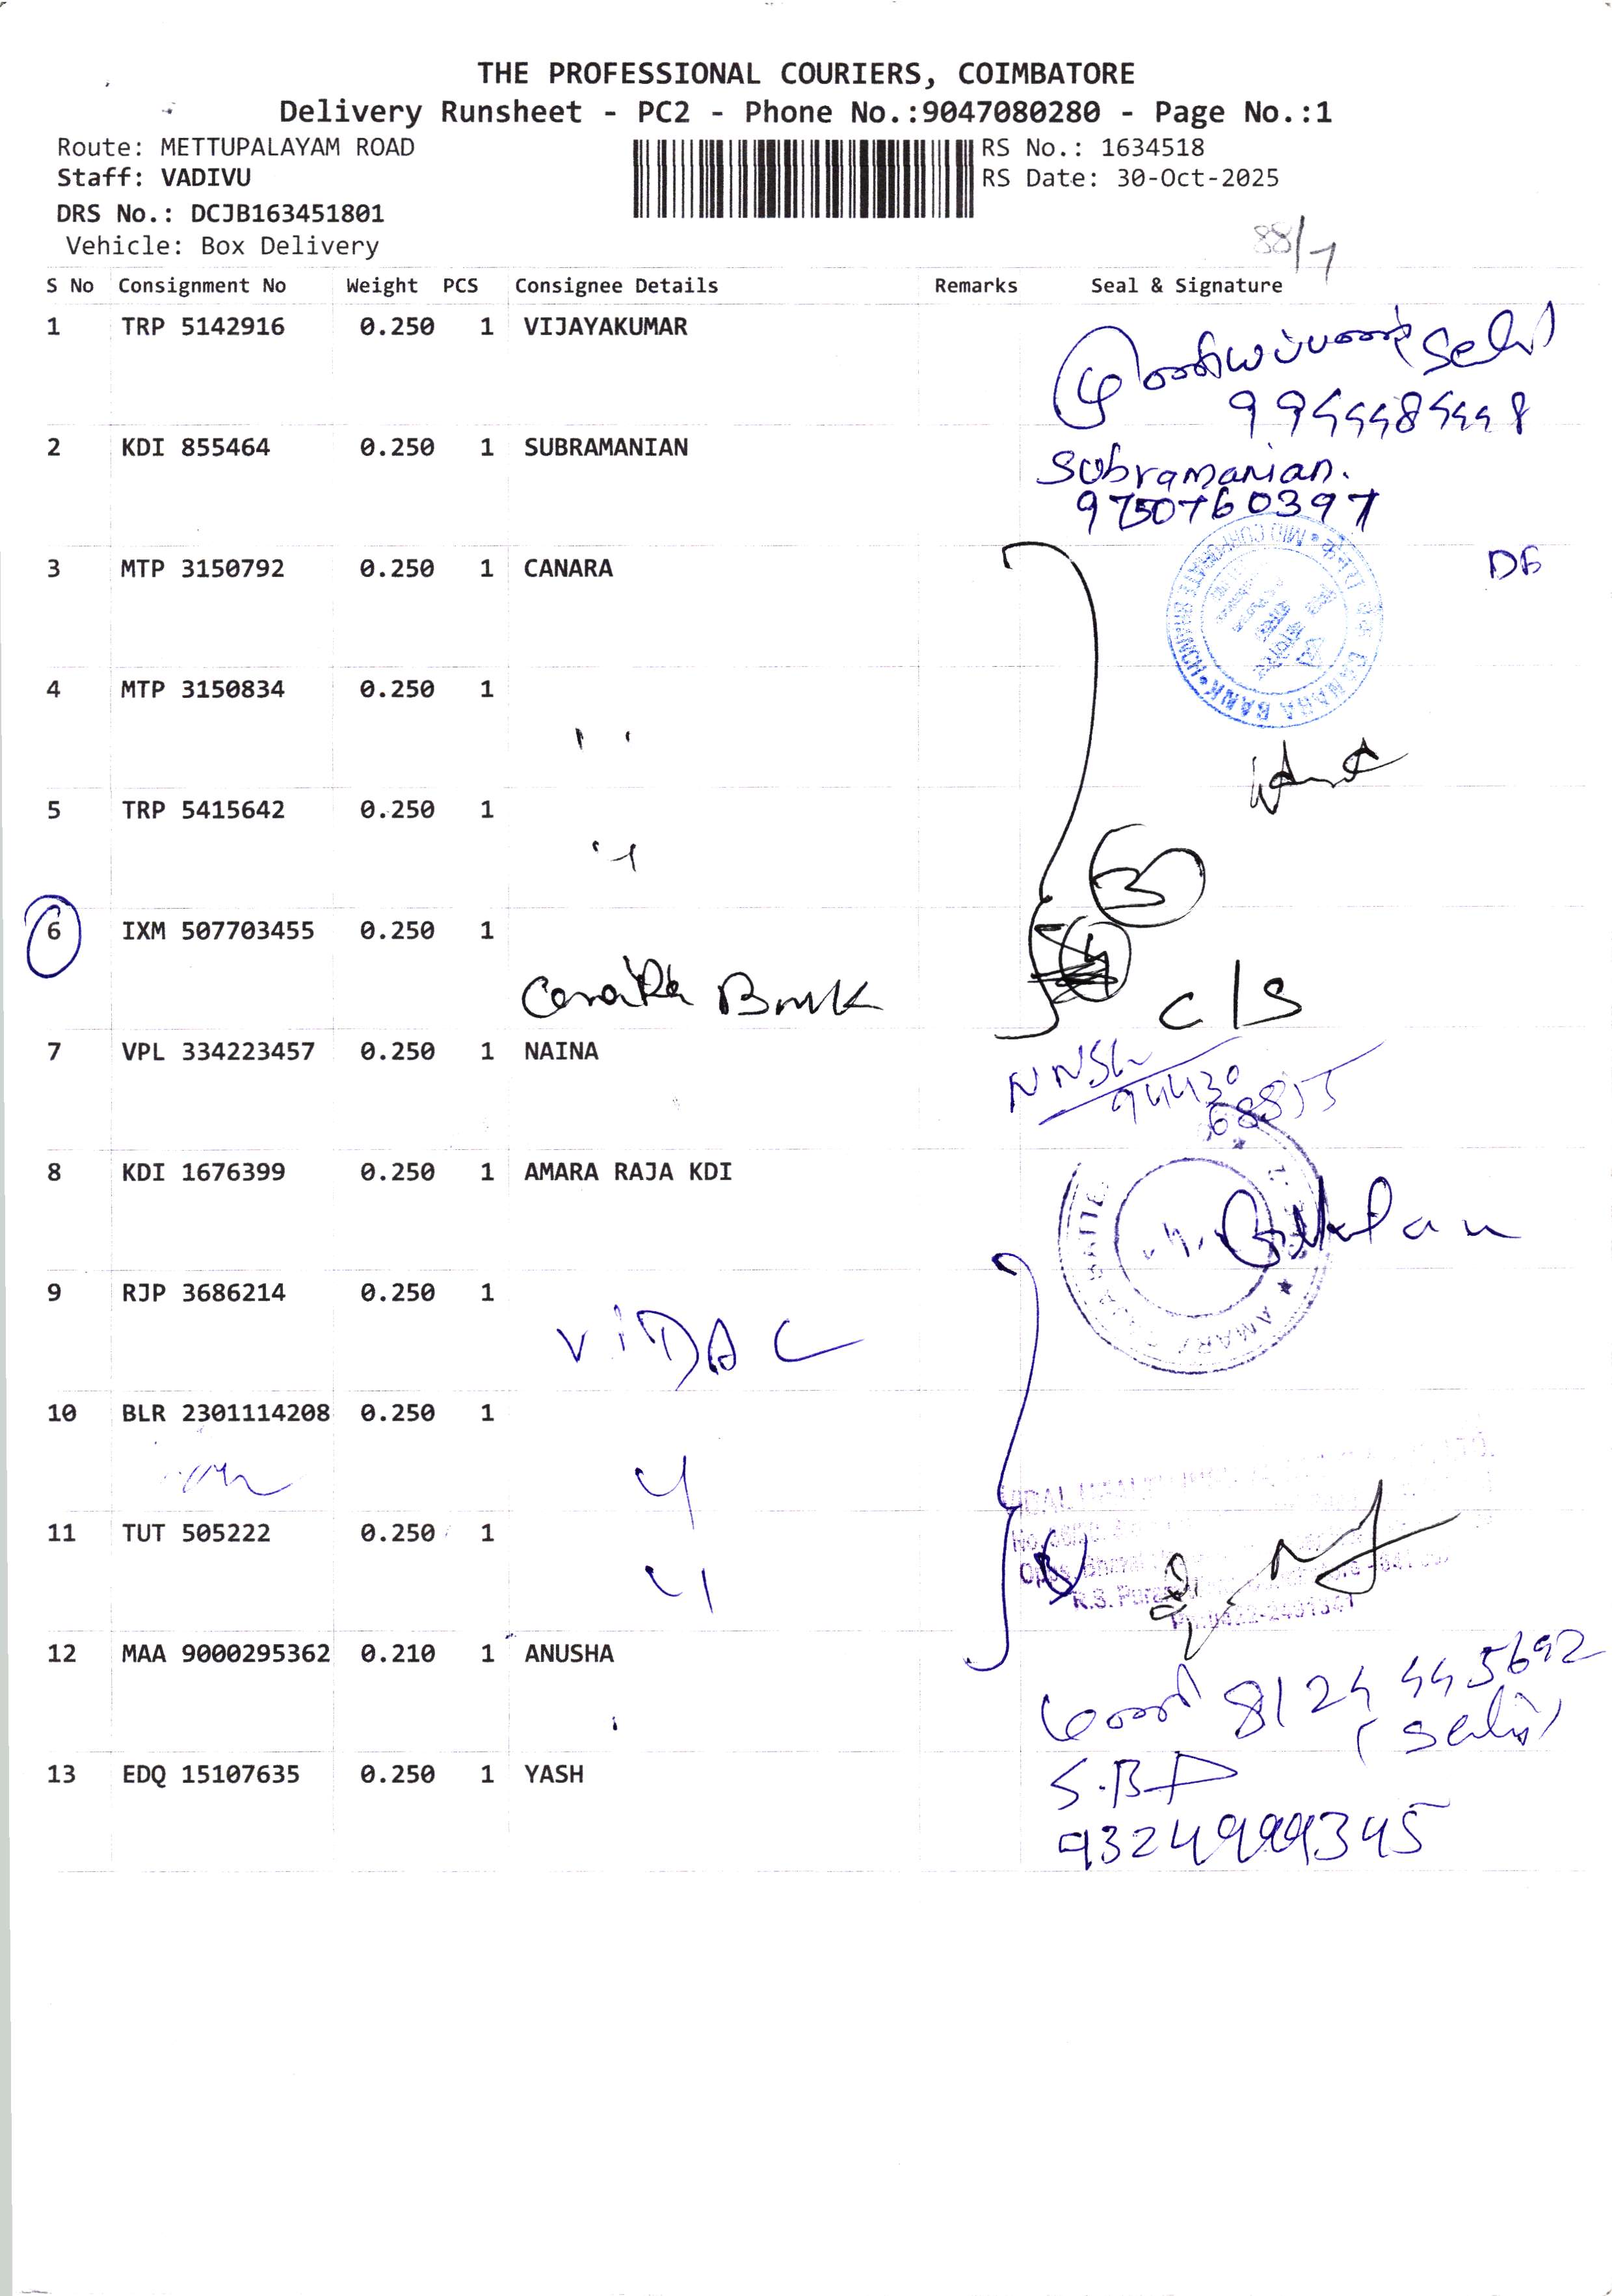 THE PROFESSIONAL COURIERS, COIMBATORE
Delivery Runsheet - PC2 - Phone No.:9047080280 - Page No.:1
Route: METTUPALAYAM ROAD
RS No.: 1634518
Staff: VADIVU
RS Date: 30-Oct-2025
DRS No.: DCJB163451801
Vehicle: Box Delivery
88/1
S No Consignment No Weight PCS Consignee Details Remarks Seal & Signature
1 TRP 5142916 0.250 1 VIJAYAKUMAR
2 KDI 855464 0.250 1 SUBRAMANIAN
Subramanian.
9750760397
3 MTP 3150792 0.250 1 CANARA
CANARA BANK
4 MTP 3150834 0.250 1
5 TRP 5415642 0.250 1
3
6 IXM 507703455 0.250 1
Canara Bank
c/s
7 VPL 334223457 0.250 1 NAINA
94430
8 KDI 1676399 0.250 1 AMARA RAJA KDI
AMARA
9 RJP 3686214 0.250 1
ViDAL
10 BLR 2301114208 0.250 1
11 TUT 505222 0.250 1
R.S. Puram
12 MAA 9000295362 0.210 1 ANUSHA
8124445692
13 EDQ 15107635 0.250 1 YASH